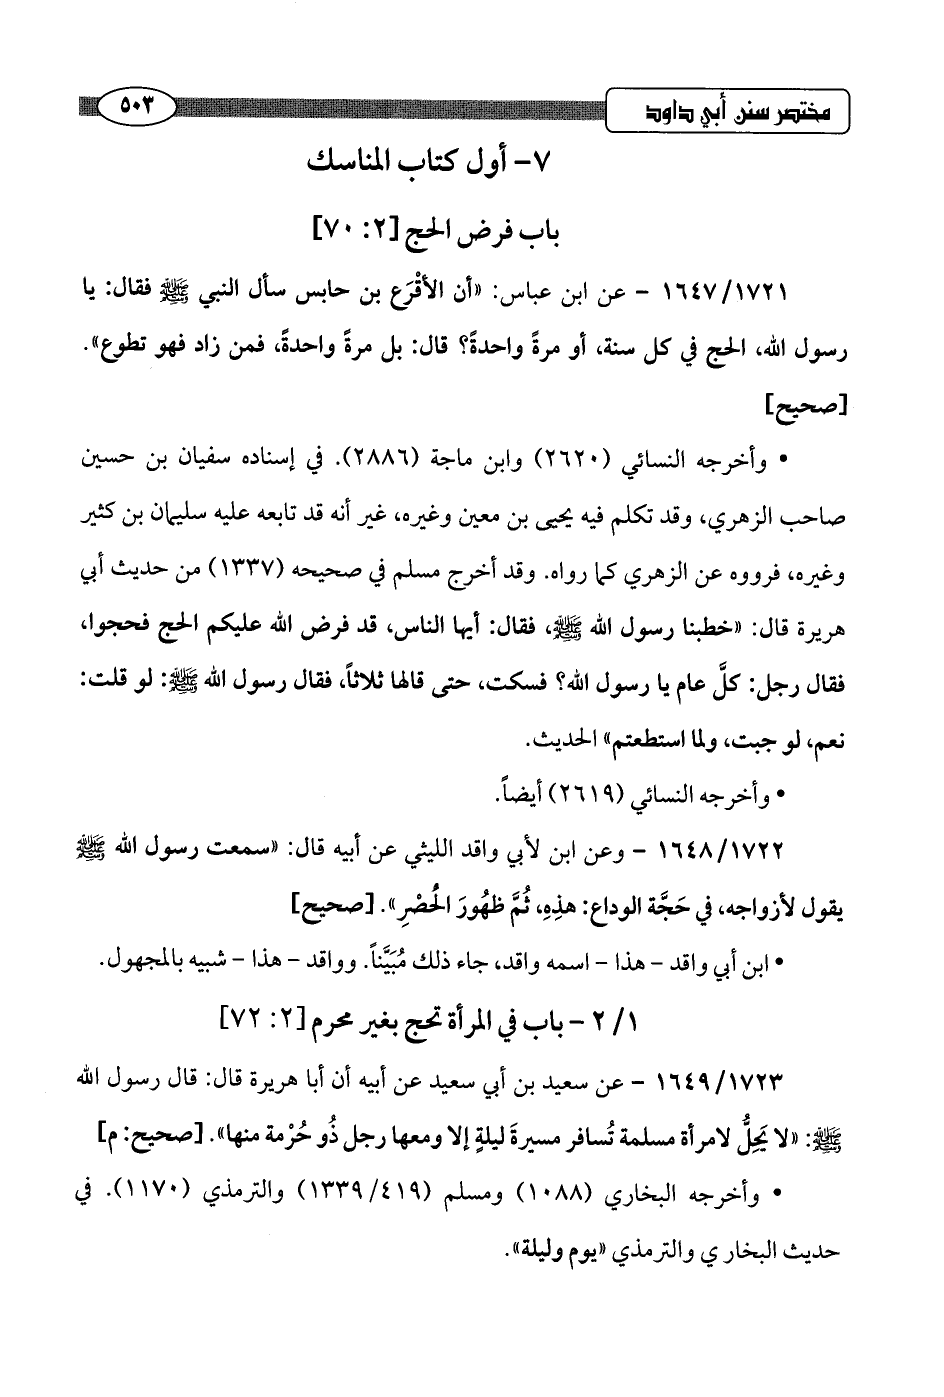 مختصر سنن أبي داود ٥٠٣
٧- أول كتاب المناسك
باب فرض الحج [٢: ٧٠]
١٦٤٧/١٧٢١ - عن ابن عباس: «أن الأقْرَع بن حابس سأل النبي ﷺ فقال: يا
رسول الله، الحج في كل سنة، أو مرةً واحدةً؟ قال: بل مرةً واحدةً، فمن زاد فهو تطوع».
[صحيح]
• وأخرجه النسائي (٢٦٢٠) وابن ماجة (٢٨٨٦). في إسناده سفيان بن حسين
صاحب الزهري، وقد تكلم فيه يحيى بن معين وغيره، غير أنه قد تابعه عليه سليمان بن كثير
وغيره، فرووه عن الزهري كما رواه. وقد أخرج مسلم في صحيحه (١٣٣٧) من حديث أبي
هريرة قال: «خطبنا رسول الله ﷺ، فقال: أيها الناس، قد فرض الله عليكم الحج فحجوا،
فقال رجل: كلَّ عام يا رسول الله؟ فسكت، حتى قالها ثلاثاً، فقال رسول الله ﷺ: لو قلت:
نعم، لو جبت، ولما استطعتم» الحديث.
• وأخرجه النسائي (٢٦١٩) أيضاً.
١٦٤٨/١٧٢٢ - وعن ابن لأبي واقد الليثي عن أبيه قال: «سمعت رسول الله ﷺ
يقول لأزواجه، في حَجَّة الوداع: هذِهِ، ثُمَّ ظهُورَ الحُصْرِ». [صحيح]
• ابن أبي واقد - هذا - اسمه واقد، جاء ذلك مُبَيَّناً. وواقد - هذا - شبيه بالمجهول.
١/ ٢ - باب في المرأة تحج بغير محرم [٢: ٧٢]
١٦٤٩/١٧٢٣ - عن سعيد بن أبي سعيد عن أبيه أن أبا هريرة قال: قال رسول الله
ﷺ: «لا يَحِلُّ لامرأة مسلمة تُسافر مسيرةَ ليلةٍ إلا ومعها رجل ذُو حُرْمة منها». [صحيح: م]
• وأخرجه البخاري (١٠٨٨) ومسلم (١٣٣٩/٤١٩) والترمذي (١١٧٠). في
حديث البخاري والترمذي «يوم وليلة».